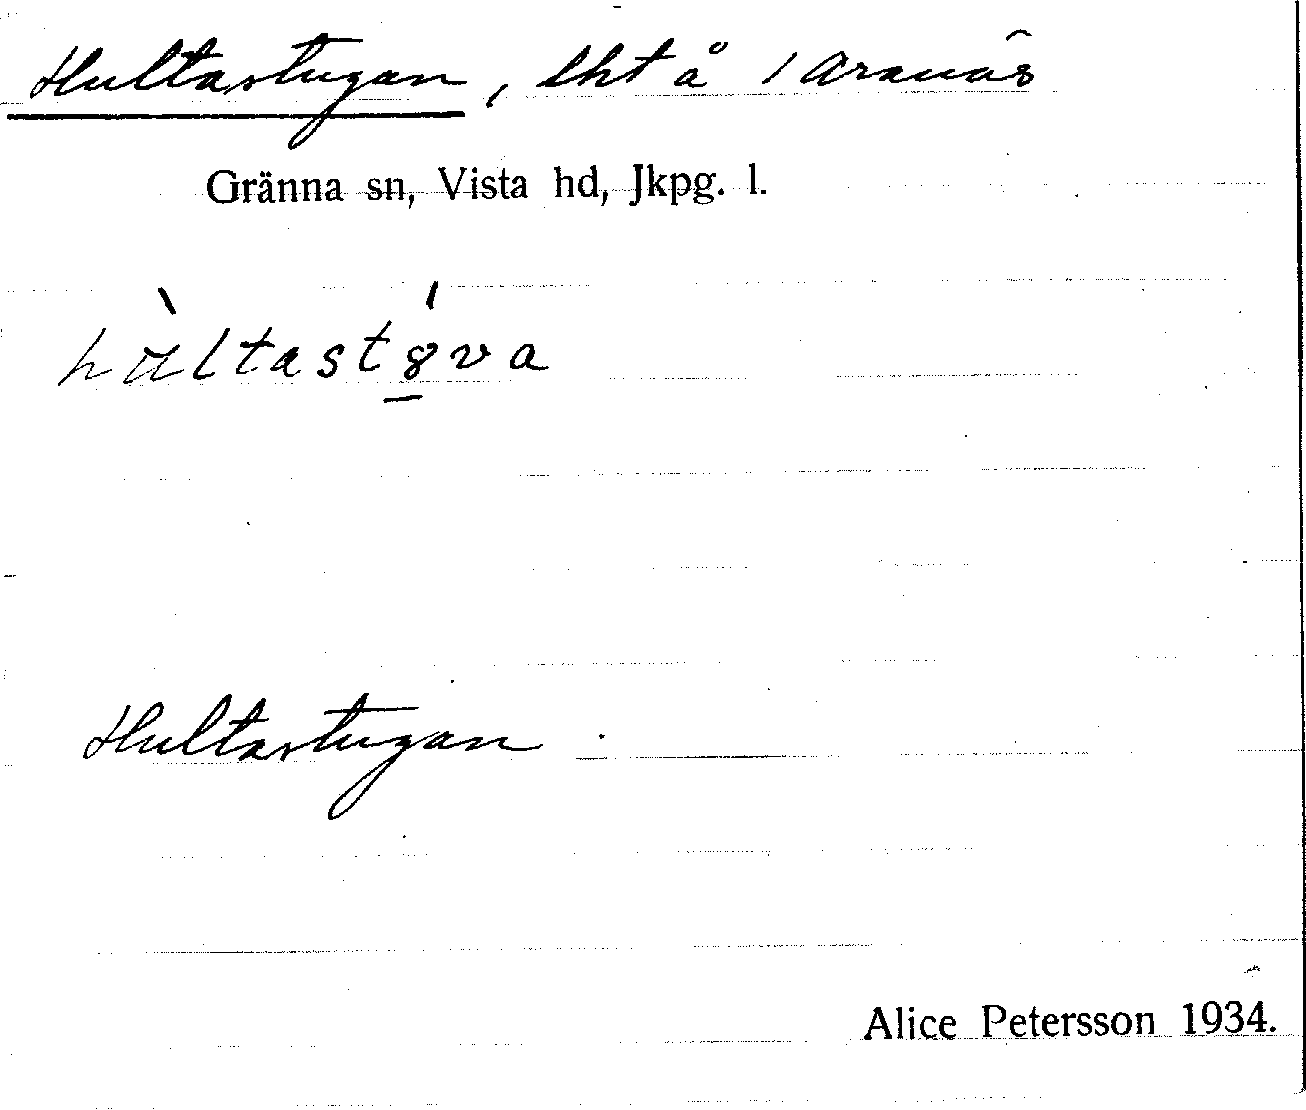 Hultastugan, lht å 1 Aranäs
Gränna sn, Vista hd, Jkpg. l.
hùltastǿ̱va
Hultastugan
Alice Petersson 1934.